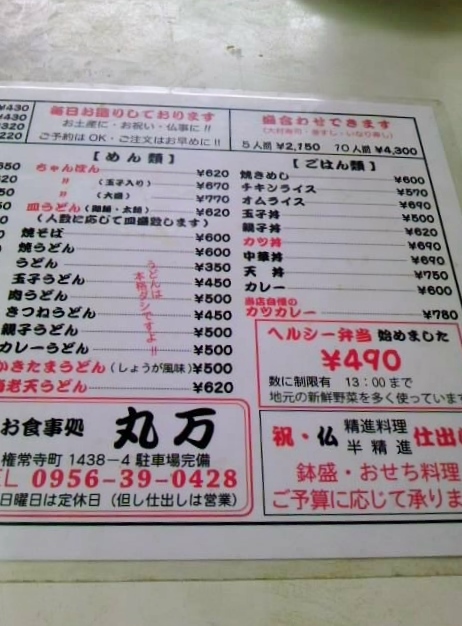 ¥430
¥430
¥320
¥220
毎日お造りしております
お土産に・お祝い・仏事に!!
ご予約はOK・ご注文はお早めに!!
盛合わせできます
(大村寿司・巻すし・いなり寿し)
5人前 ¥2,150 10人前 ¥4,300
【めん類】
ちゃんぽん ¥620
〃 (玉子入り) ¥670
〃 (大盛) ¥770
皿うどん (細麺・太麺) ¥620
(人数に応じて皿盛致します)
焼そば ¥600
焼うどん ¥600
うどん ¥350
玉子うどん ¥450
肉うどん ¥500
きつねうどん ¥450
親子うどん ¥500
カレーうどん ¥500
かきたまうどん (しょうが風味) ¥500
海老天うどん ¥620
うどんは
本格ダシですよ!!
【ごはん類】
焼きめし ¥600
チキンライス ¥570
オムライス ¥690
玉子丼 ¥500
親子丼 ¥620
カツ丼 ¥690
中華丼 ¥690
天丼 ¥750
カレー ¥600
当店自慢の
カツカレー ¥780
ヘルシー弁当 始めました
¥490
数に制限有 13:00まで
地元の新鮮野菜を多く使っています
お食事処 丸万
権常寺町1438-4 駐車場完備
TEL 0956-39-0428
日曜日は定休日 (但し仕出しは営業)
祝・仏 精進料理 半精進 仕出し
鉢盛・おせち料理
ご予算に応じて承りま